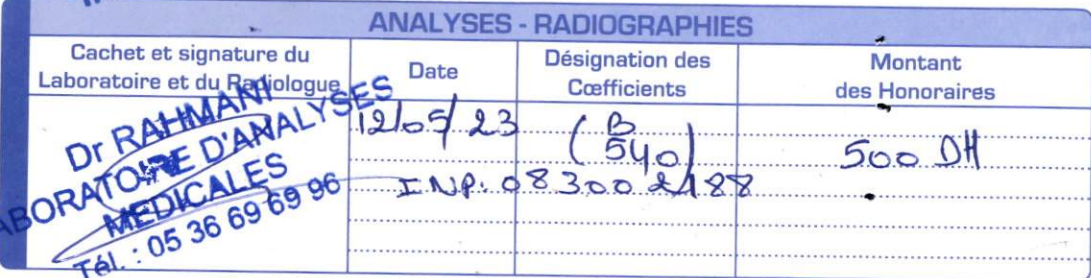 ANALYSES - RADIOGRAPHIES
Cachet et signature du Laboratoire et du Radiologue
Date
Désignation des Cœfficients
Montant des Honoraires
Dr RAHMANI
LABORATOIRE D'ANALYSES
MEDICALES
Tél. : 05 36 69 69 96
12/05/23
(B 540)
500 DH
INP: 083002188